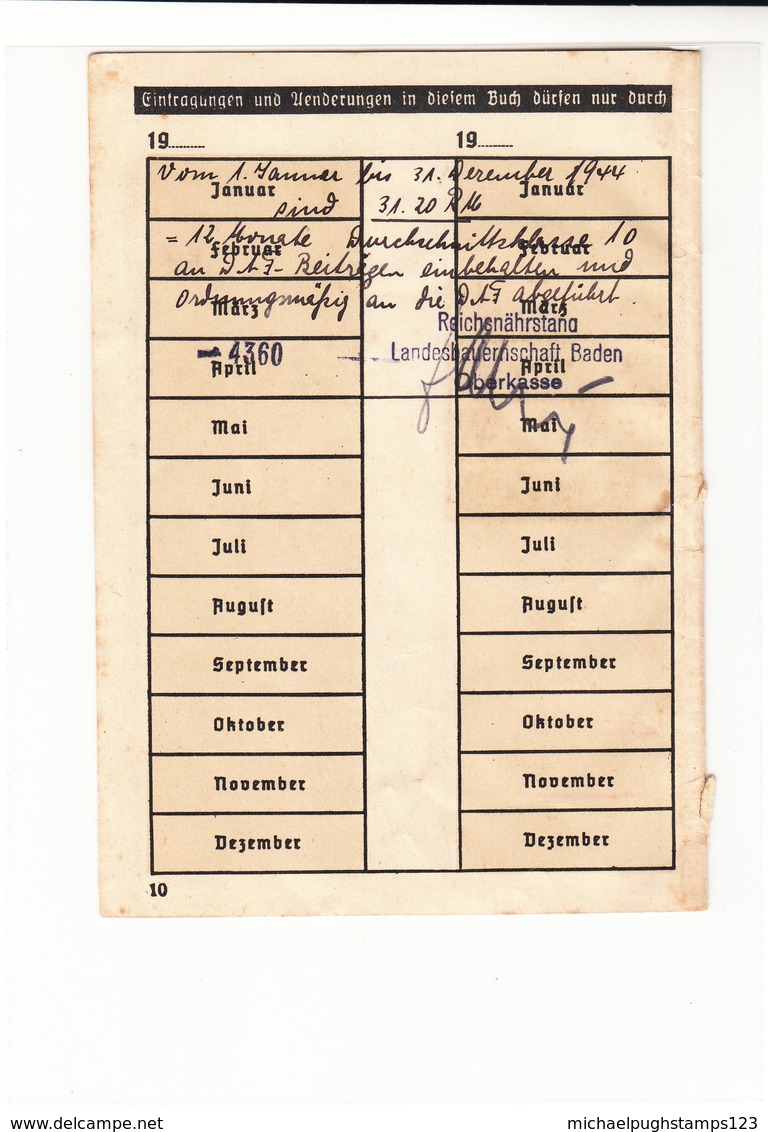 Eintragungen und Aenderungen in diesem Buch dürfen nur durch
19........ 19........
Vom 1. Januar bis 31. Dezember 1944
Januar Januar
sind 31.20 RM
= 12 Monate Durchschnittsklasse 10
Februar Februar
an DAF-Beiträgen einbehalten und
ordnungsmäßig an die DAF abgeführt.
März März
Reichsnährstand
4360 Landesbauernschaft Baden
April April
Oberkasse
Mai Mai
Juni Juni
Juli Juli
August August
September September
Oktober Oktober
November November
Dezember Dezember
10
www.delcampe.net michaelpughstamps123